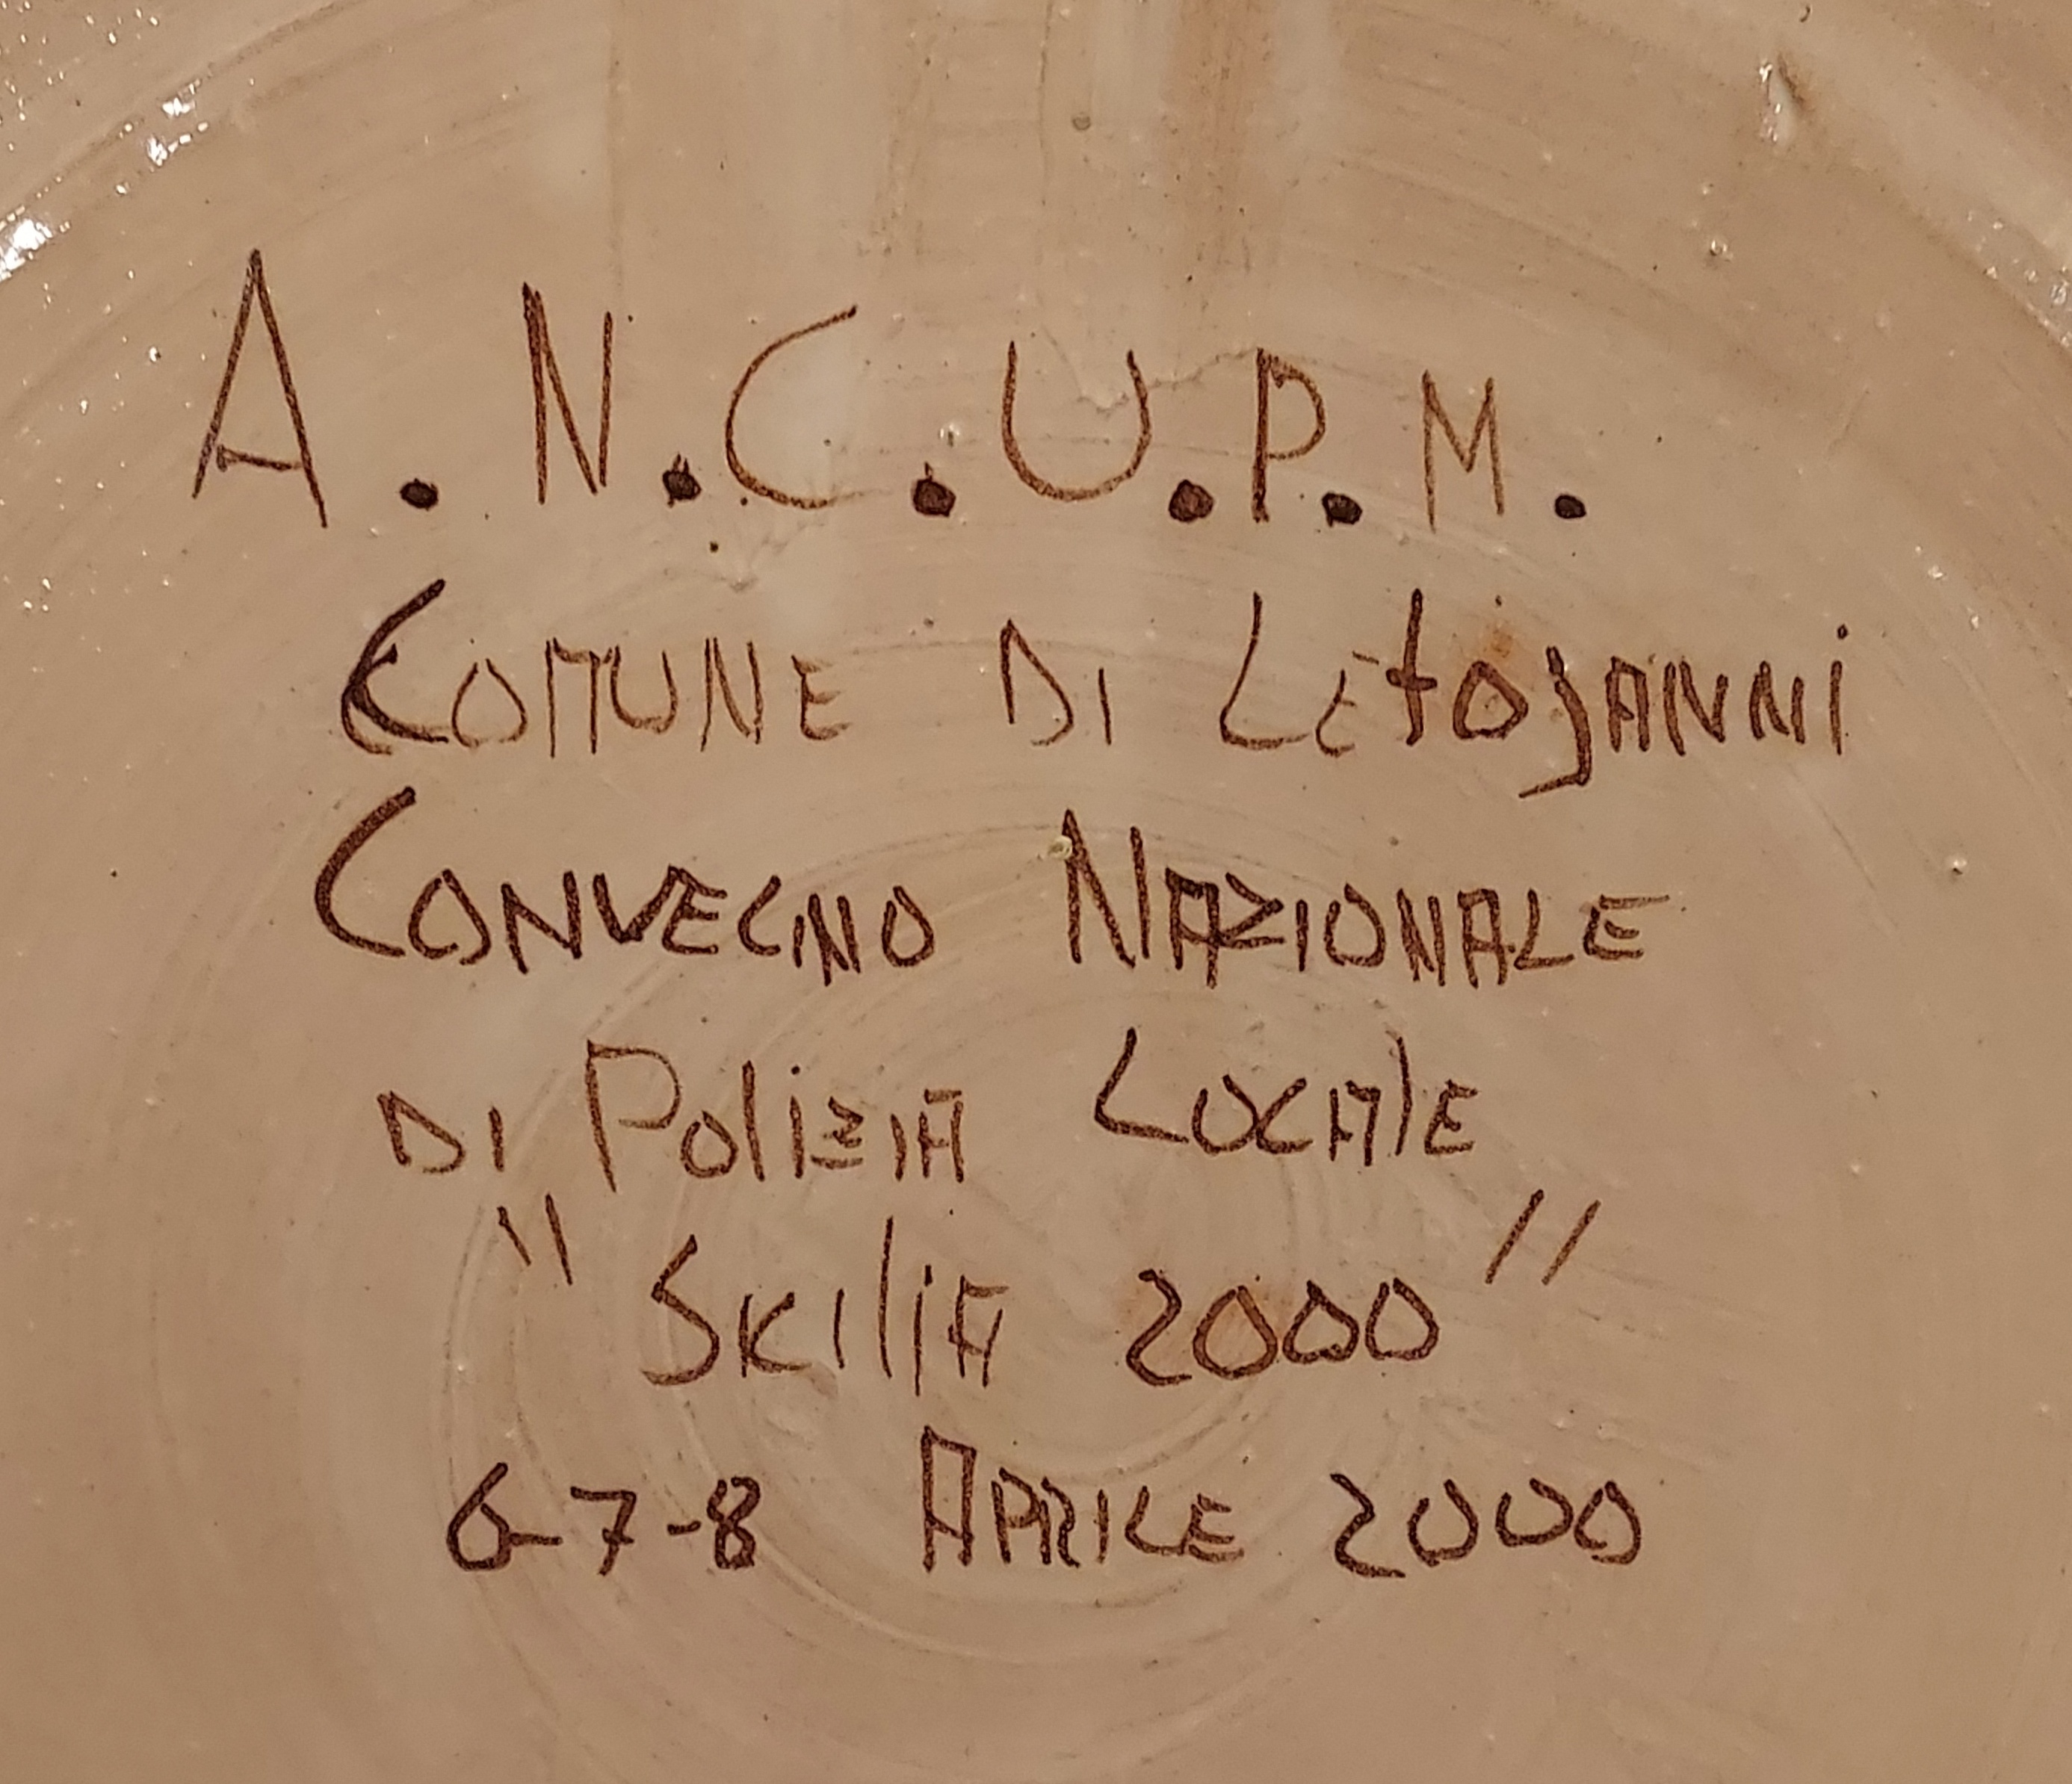 A.N.C.U.P.M.
COMUNE DI LETOJANNI
CONVEGNO NAZIONALE
DI POLIZIA LOCALE
"SKILIA 2000"
6-7-8 APRILE 2000